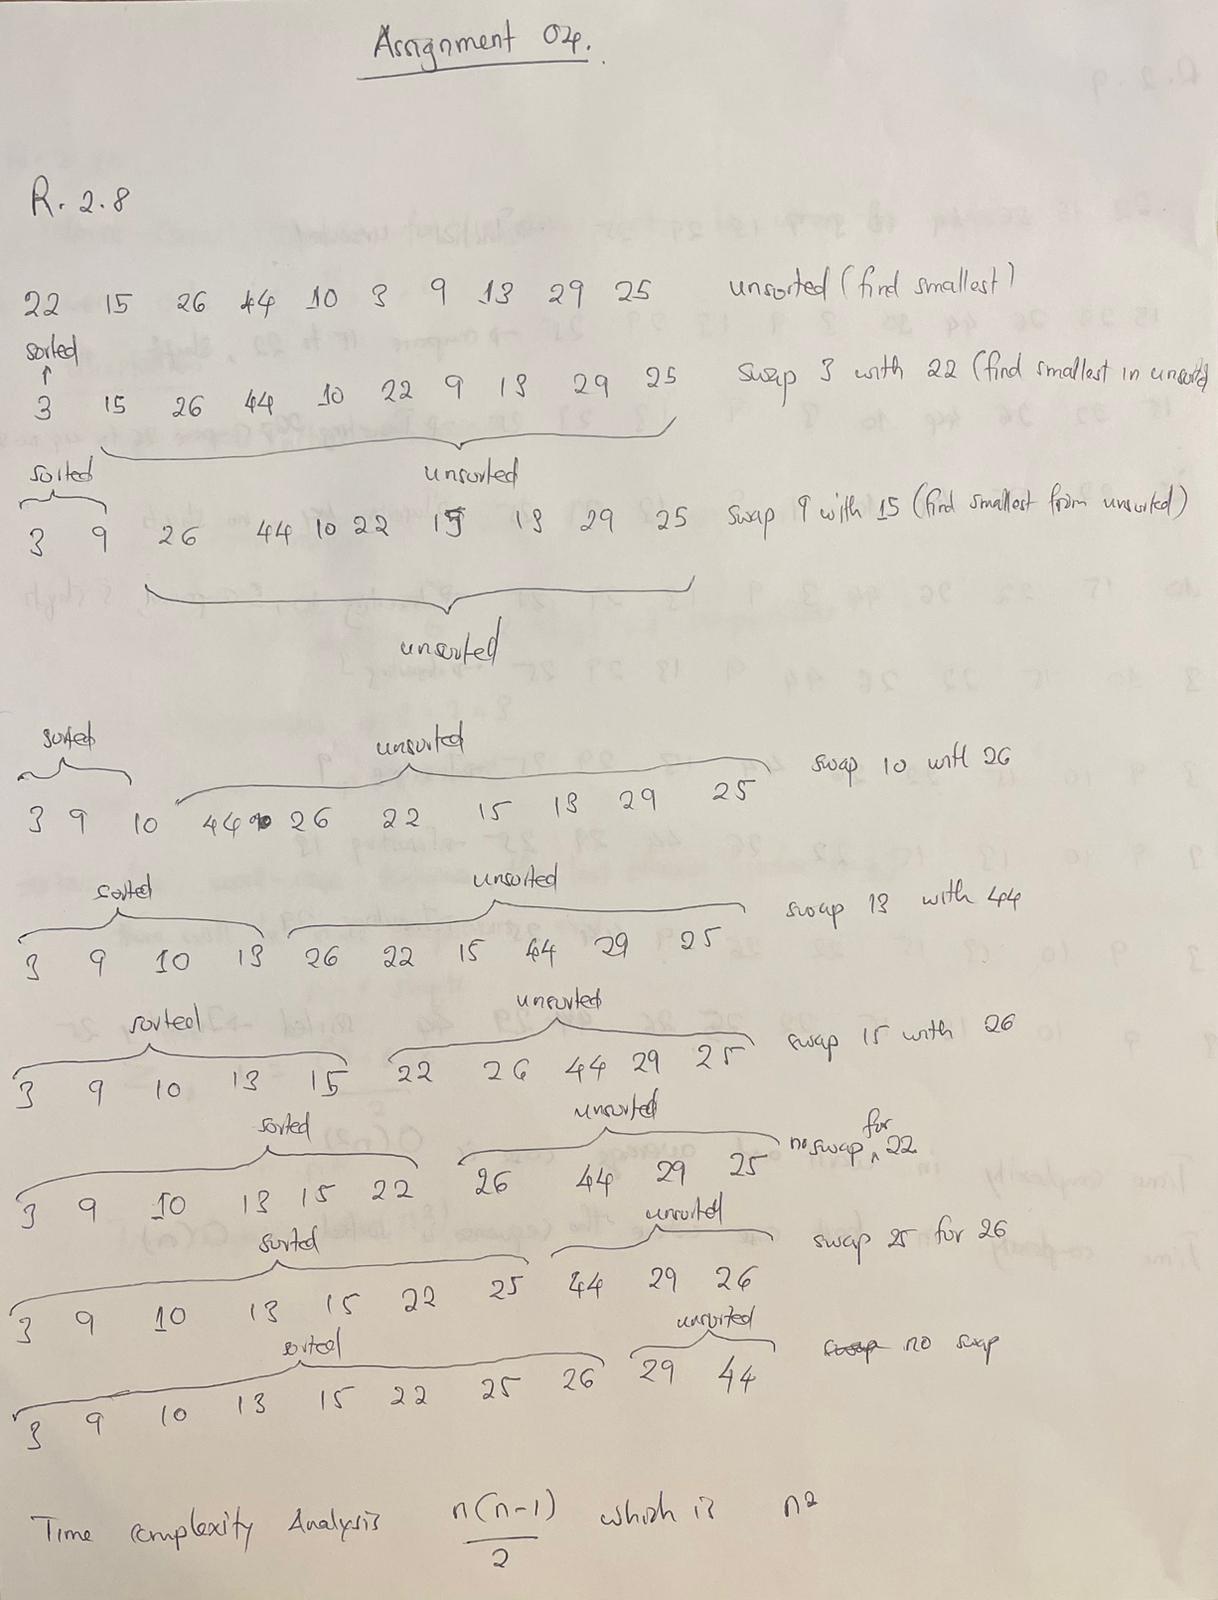 Assignment 04.
R. 2.8
22 15 26 44 10 3 9 13 29 25 unsorted (find smallest)
sorted
↑
3 15 26 44 10 22 9 13 29 25 swap 3 with 22 (find smallest in unsorted
sorted unsorted
3 9 26 44 10 22 15 13 29 25 swap 9 with 15 (find smallest from unsorted)
unsorted
sorted unsorted
3 9 10 44 26 22 15 13 29 25 swap 10 with 26
sorted unsorted
3 9 10 13 26 22 15 44 29 25 swap 13 with 44
sorted unsorted
3 9 10 13 15 22 26 44 29 25 swap 15 with 26
sorted unsorted
3 9 10 13 15 22 26 44 29 25 no swap for 22
sorted unsorted
3 9 10 13 15 22 25 44 29 26 swap 25 for 26
sorted unsorted
3 9 10 13 15 22 25 26 29 44 swap no swap
Time complexity Analysis n(n-1)/2 which is n²